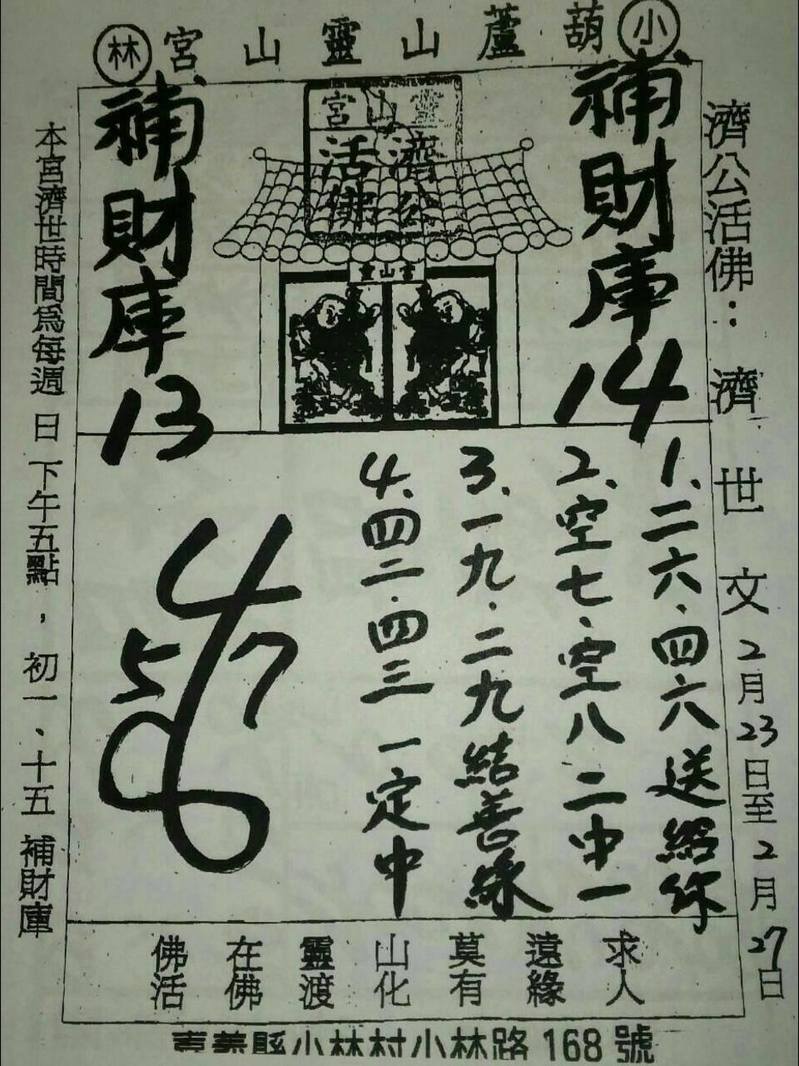 小葫蘆山靈山宮林
濟公活佛：濟世文2月23日至2月27日
補財庫14
靈山宮
濟公
活佛
靈山宮
補財庫13
1、二六．四六送給你
2、空七、空八二中一
3、一九．二九結善緣
4、四二．四三一定中
4
5 7
6
佛在靈山莫遠求
活佛渡化有緣人
本宮濟世時間為每週日下午五點，初一、十五補財庫
嘉義縣小林村小林路168號